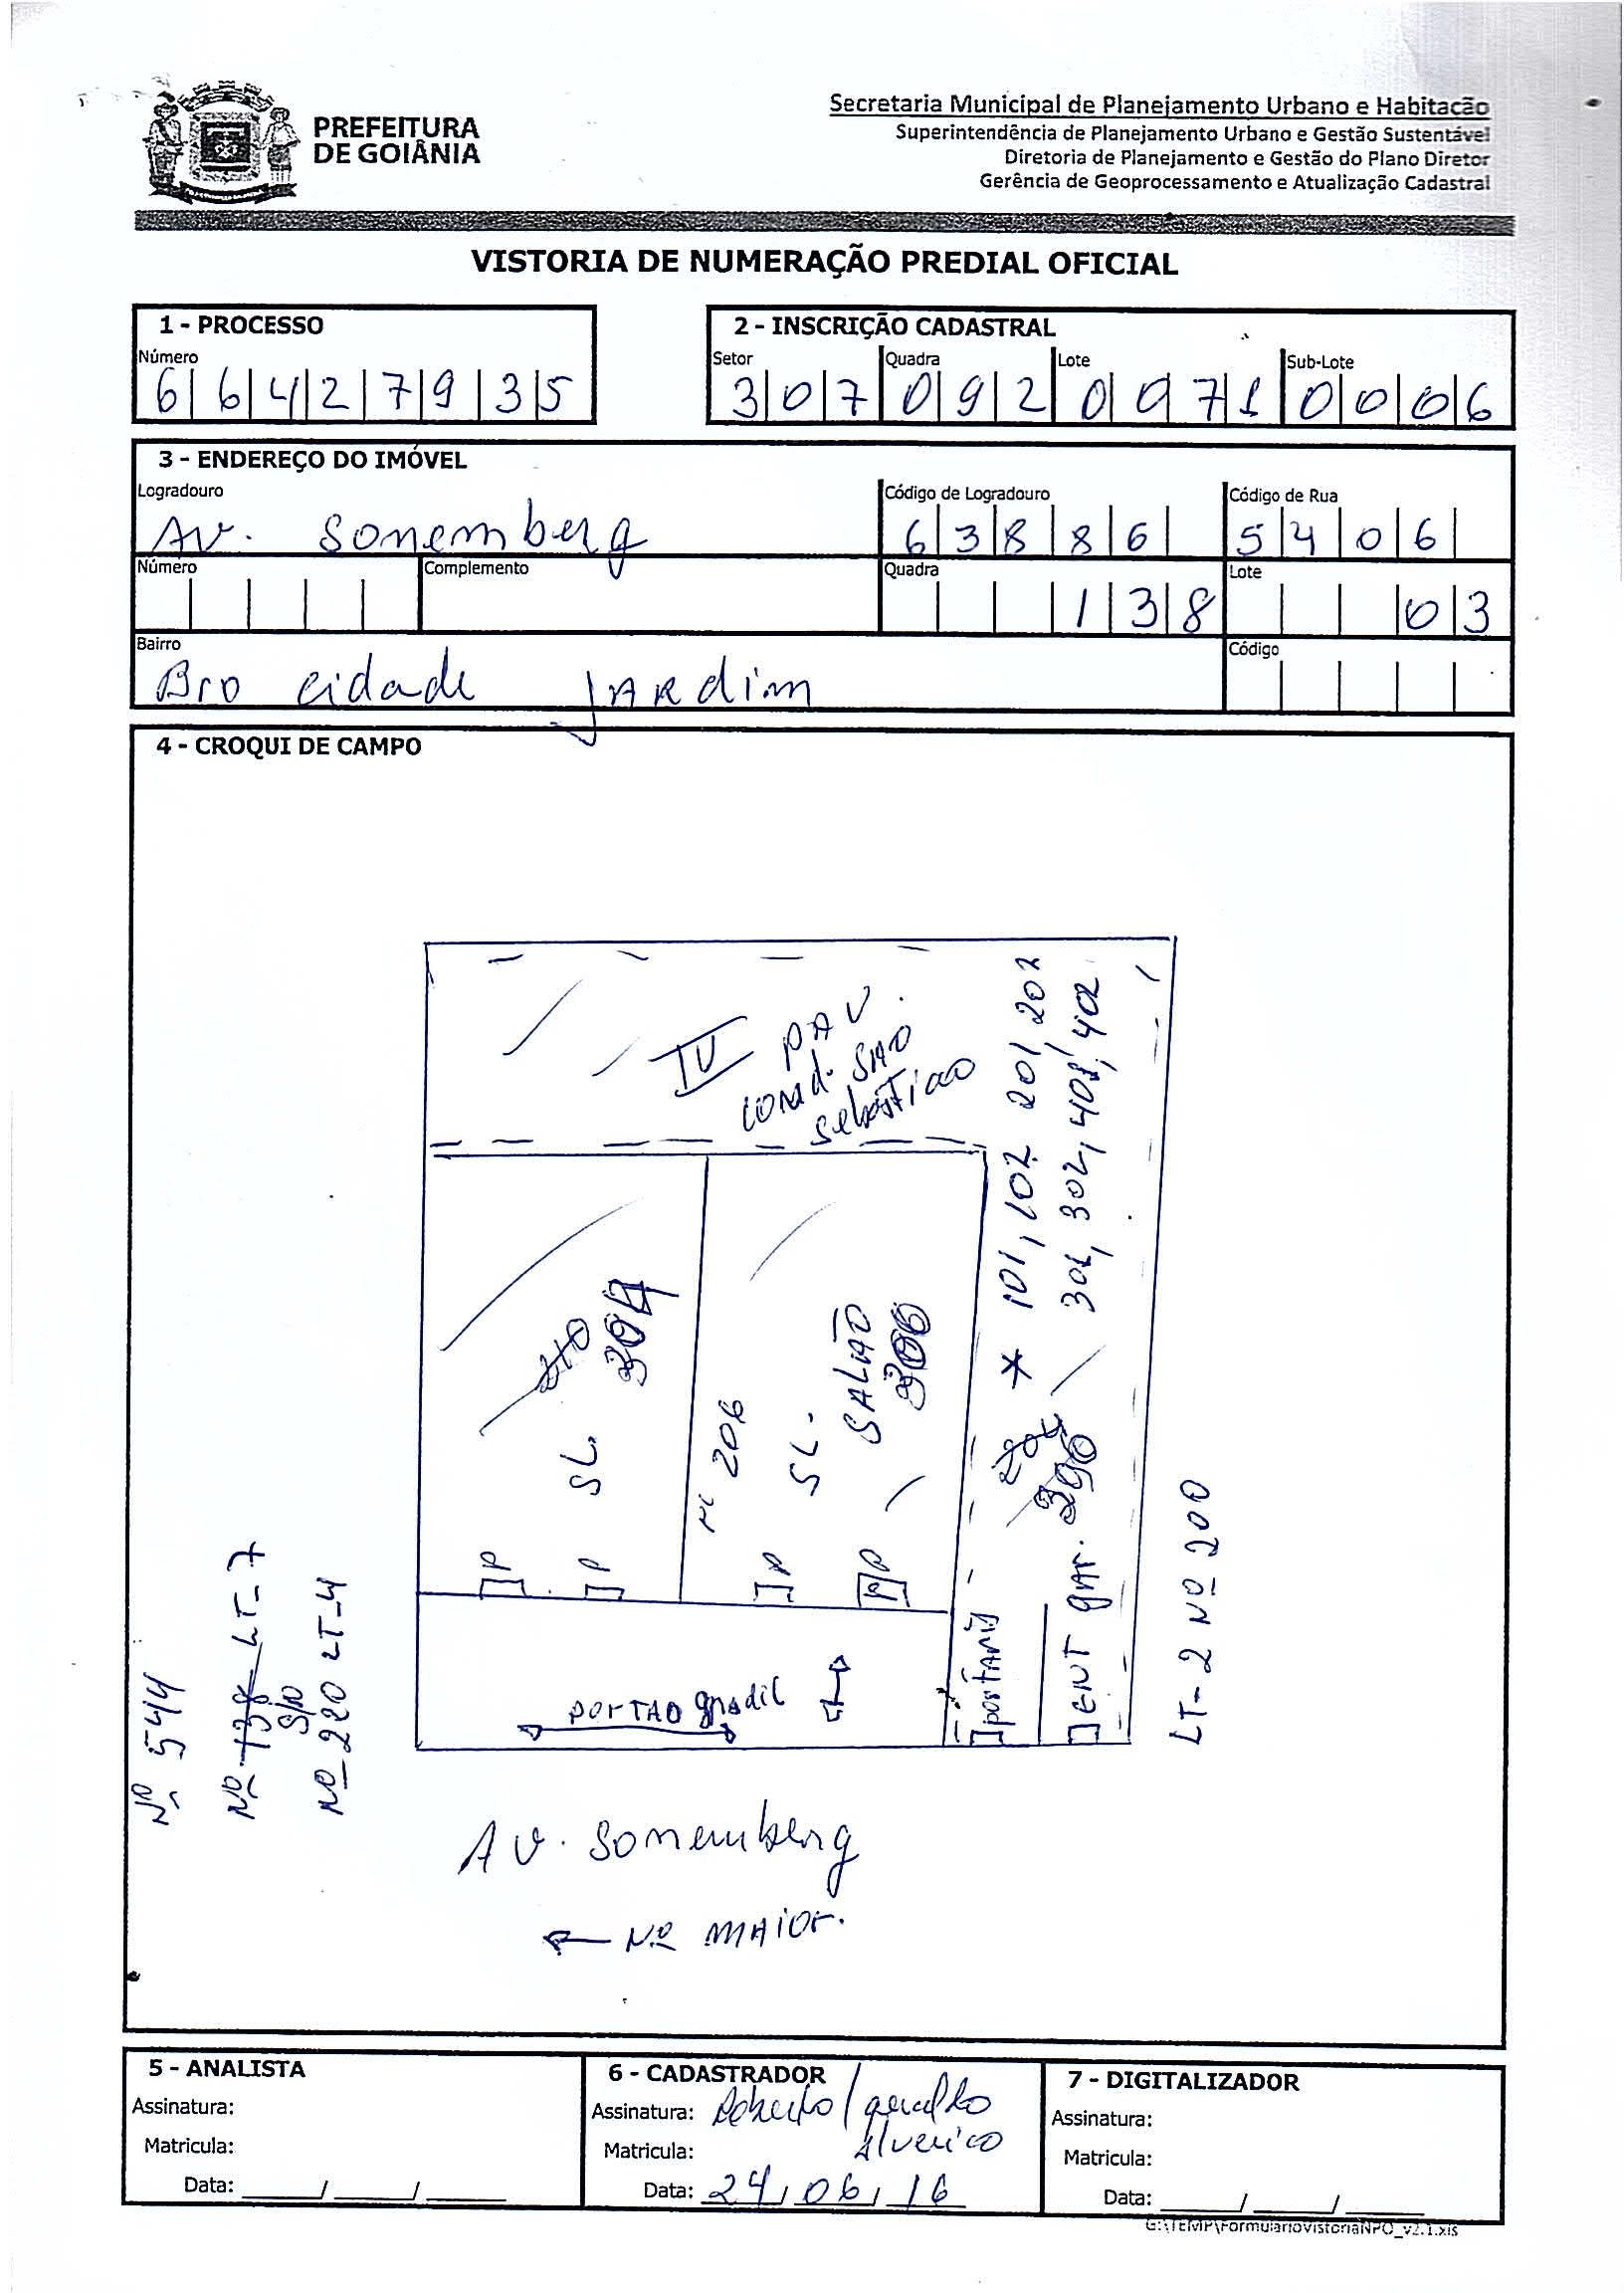 PREFEITURA
DE GOIÂNIA
Secretaria Municipal de Planejamento Urbano e Habitação
Superintendência de Planejamento Urbano e Gestão Sustentável
Diretoria de Planejamento e Gestão do Plano Diretor
Gerência de Geoprocessamento e Atualização Cadastral
VISTORIA DE NUMERAÇÃO PREDIAL OFICIAL
1 - PROCESSO
Número
6 6 4 2 7 9 3 5
2 - INSCRIÇÃO CADASTRAL
Setor Quadra Lote Sub-Lote
3 0 7 0 9 2 0 0 7 1 0 0 0 6
3 - ENDEREÇO DO IMÓVEL
Logradouro Código de Logradouro Código de Rua
Av. Sonemberg 6 3 8 8 6 5 4 0 6
Número Complemento Quadra Lote
1 3 8 0 3
Bairro Código
Bro cidade JARdim
4 - CROQUI DE CAMPO
IV PAV.
cond. SÃO
sebastiao
* 101, 102 201, 202
301, 302, 401, 402
310
304
SL.
Nº 206
SL.
SALÃO
306
206
ENT gar.
portaria
PORTAO gradil
P P P P
LT-2 Nº 200
Nº 544
Nº 138 LT-7
S/Nº
Nº 220 LT-4
AV. Sonemberg
← Nº MAIOR.
5 - ANALISTA
Assinatura:
Matricula:
Data: ____/____/____
6 - CADASTRADOR
Assinatura: Roberto / geraldo
Alverico
Matricula:
Data: 24/06/16
7 - DIGITALIZADOR
Assinatura:
Matricula:
Data: ____/____/____
G:\TEMP\FormularioVistoriaNPO_v2.1.xls